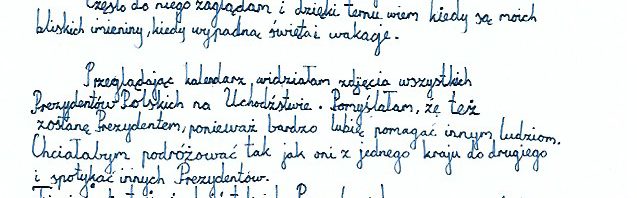 Często do niego zaglądam i dzięki temu wiem kiedy są moich
bliskich imieniny, kiedy wypadną święta i wakacje.
Przeglądając kalendarz, widziałam zdjęcia wszystkich
Prezydentów Polskich na Uchodźstwie. Pomyślałam, że też
zostanę Prezydentem, ponieważ bardzo lubię pomagać innym ludziom.
Chciałabym podróżować tak jak oni z jednego kraju do drugiego
i spotykać innych Prezydentów.